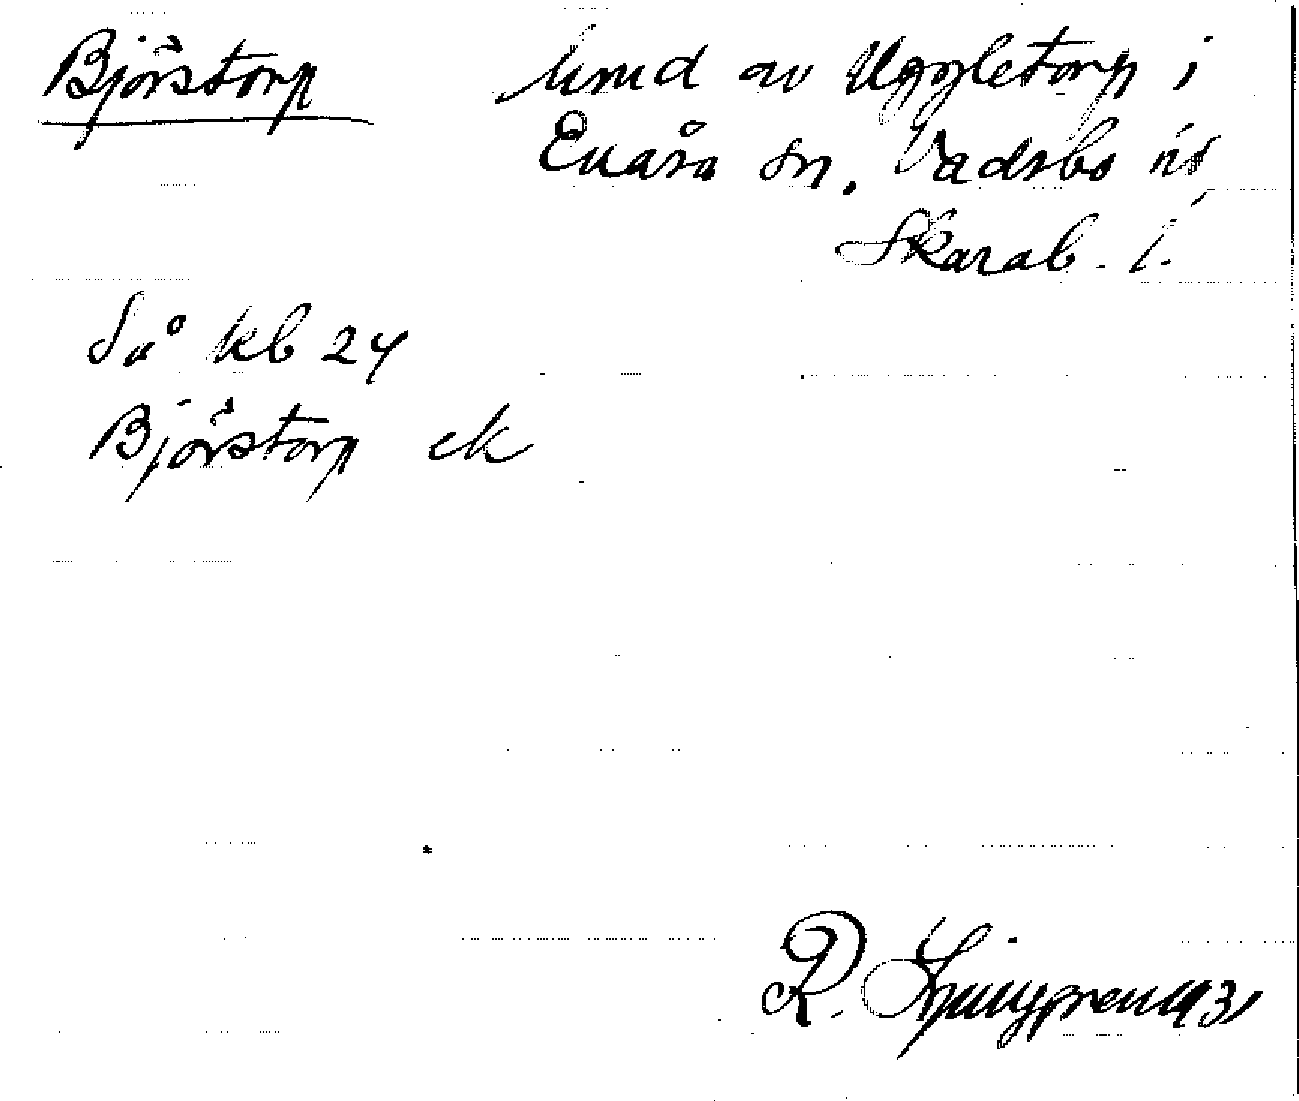 Björstorp und av Uggletorp i
Enåsa sn. Vadsbo
Skarab. l.
Så kb 24
Björstorp ek
R. Ljunggren 1931